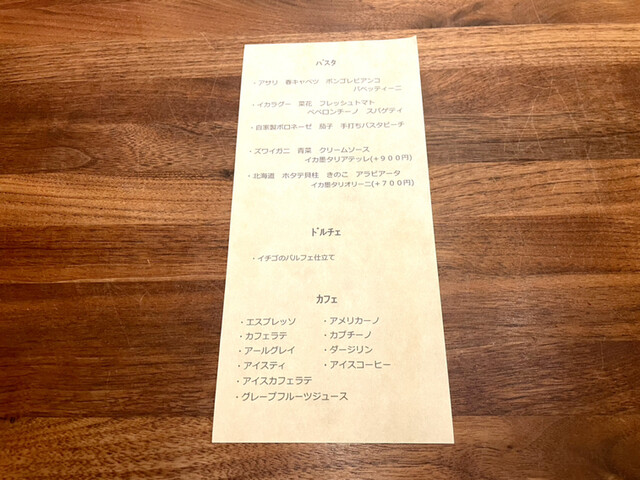 パスタ
・アサリ 春キャベツ ボンゴレビアンコ
バベッティーニ
・イカラグー 菜花 フレッシュトマト
ペペロンチーノ スパゲティ
・自家製ボロネーゼ 茄子 手打ちパスタピーチ
・ズワイガニ 青菜 クリームソース
イカ墨タリアテッレ(+900円)
・北海道 ホタテ貝柱 きのこ アラビアータ
イカ墨タリオリーニ(+700円)
ドルチェ
・イチゴのパルフェ仕立て
カフェ
・エスプレッソ ・アメリカーノ
・カフェラテ ・カプチーノ
・アールグレイ ・ダージリン
・アイスティ ・アイスコーヒー
・アイスカフェラテ
・グレープフルーツジュース